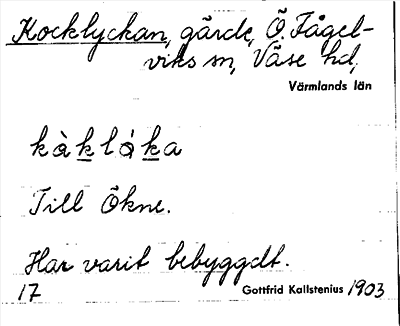 Kocklyckan, gärde, Ö. Fågel-
viks sn, Väse hd,
Värmlands län
kȧ̀klȧ́ka
Till Ökne.
Har varit bebyggdt.
17 Gottfrid Kallstenius 1903